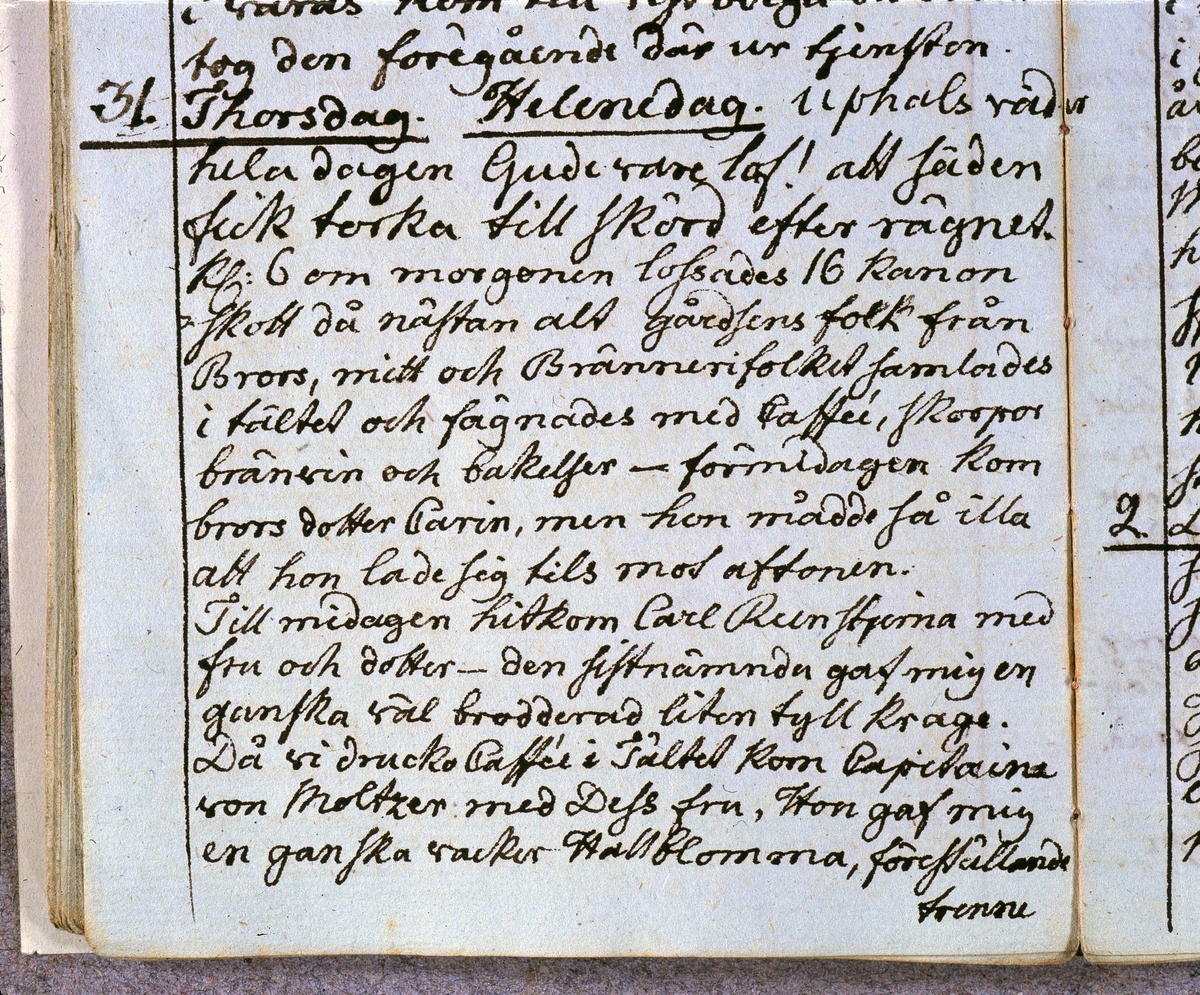 tog den föregående där ur tjensten.
31. Thorsdag. Helenedag. Uphals väder
hela dagen Gudi vare lof! att säden
fick torka till skörd efter rägnet.
Kl: 6 om morgonen lossades 16 kanon
skott då nästan alt gårdsens folk från
Brors, mitt och Brännerifolket samlades
i tältet och fägnades med Caffée, skorpor
bränvin och bakelser — förmidagen kom
brors dotter Carin, men hon mådde så illa
att hon lade sig tils mot aftonen.
Till midagen hitkom Carl Reenstjerna med
fru och dotter — den sistnämnda gaf mig en
ganska väl brodderad liten tyll krage.
Då vi drucko Caffée i Tältet kom Capitaine
von Moltzer med Dess fru, Hon gaf mig
en ganska vacker Hallblomma, föreställande
trenne
2.